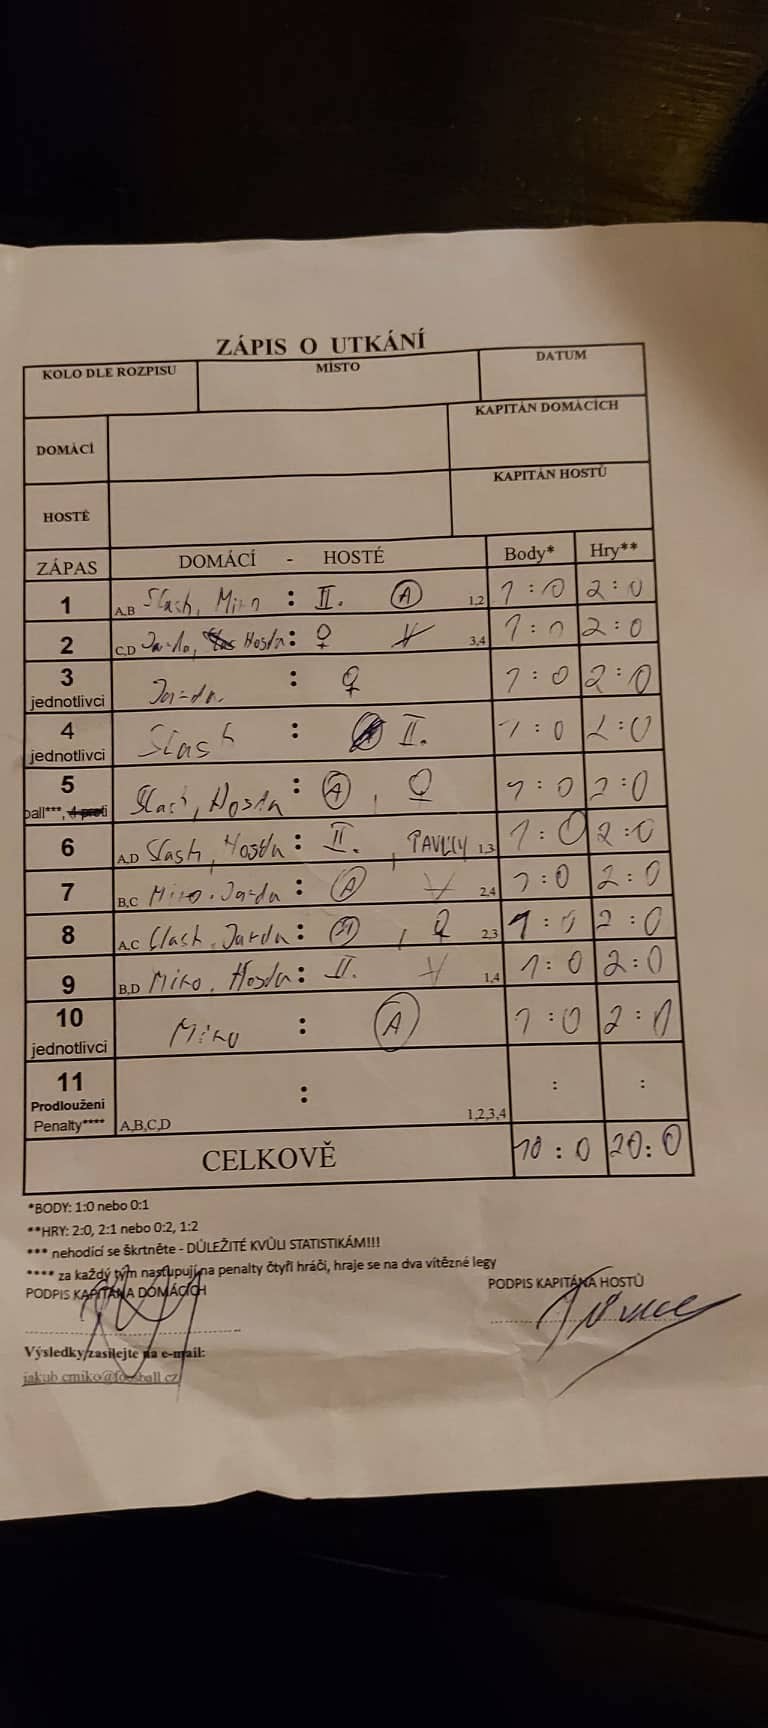 ZÁPIS O UTKÁNÍ
KOLO DLE ROZPISU MÍSTO DATUM
DOMÁCÍ KAPITÁN DOMÁCÍCH
HOSTÉ KAPITÁN HOSTŮ
ZÁPAS DOMÁCÍ - HOSTÉ Body* Hry**
1 A,B Slash, Miro : II. A 1,2 1:0 2:0
2 C,D Jarda, Hosda : ♀ 3,4 1:0 2:0
3 jednotlivci Jarda : ♀ 1:0 2:0
4 jednotlivci Slash : II. 1:0 2:0
5 ball***, 4 proti Slash, Hosda : A, ♀ 1:0 2:0
6 A,D Slash, Hosda : II., 1,3 1:0 2:0
7 B,C Miro, Jarda : A 2,4 1:0 2:0
8 A,C Slash, Jarda : , ♀ 2,3 1:0 2:0
9 B,D Miro, Hosda : II. 1,4 1:0 2:0
10 jednotlivci Miro : A 1:0 2:0
11 Prodloužení Penalty**** A,B,C,D : 1,2,3,4 : :
CELKOVĚ 10:0 20:0
*BODY: 1:0 nebo 0:1
**HRY: 2:0, 2:1 nebo 0:2, 1:2
*** nehodící se škrtněte - DŮLEŽITÉ KVŮLI STATISTIKÁM!!!
**** za každý tým nastupují na penalty čtyři hráči, hraje se na dva vítězné legy
PODPIS KAPITÁNA DOMÁCÍCH PODPIS KAPITÁNA HOSTŮ
Výsledky zasílejte na e-mail:
jakub.cmiko@foosball.cz